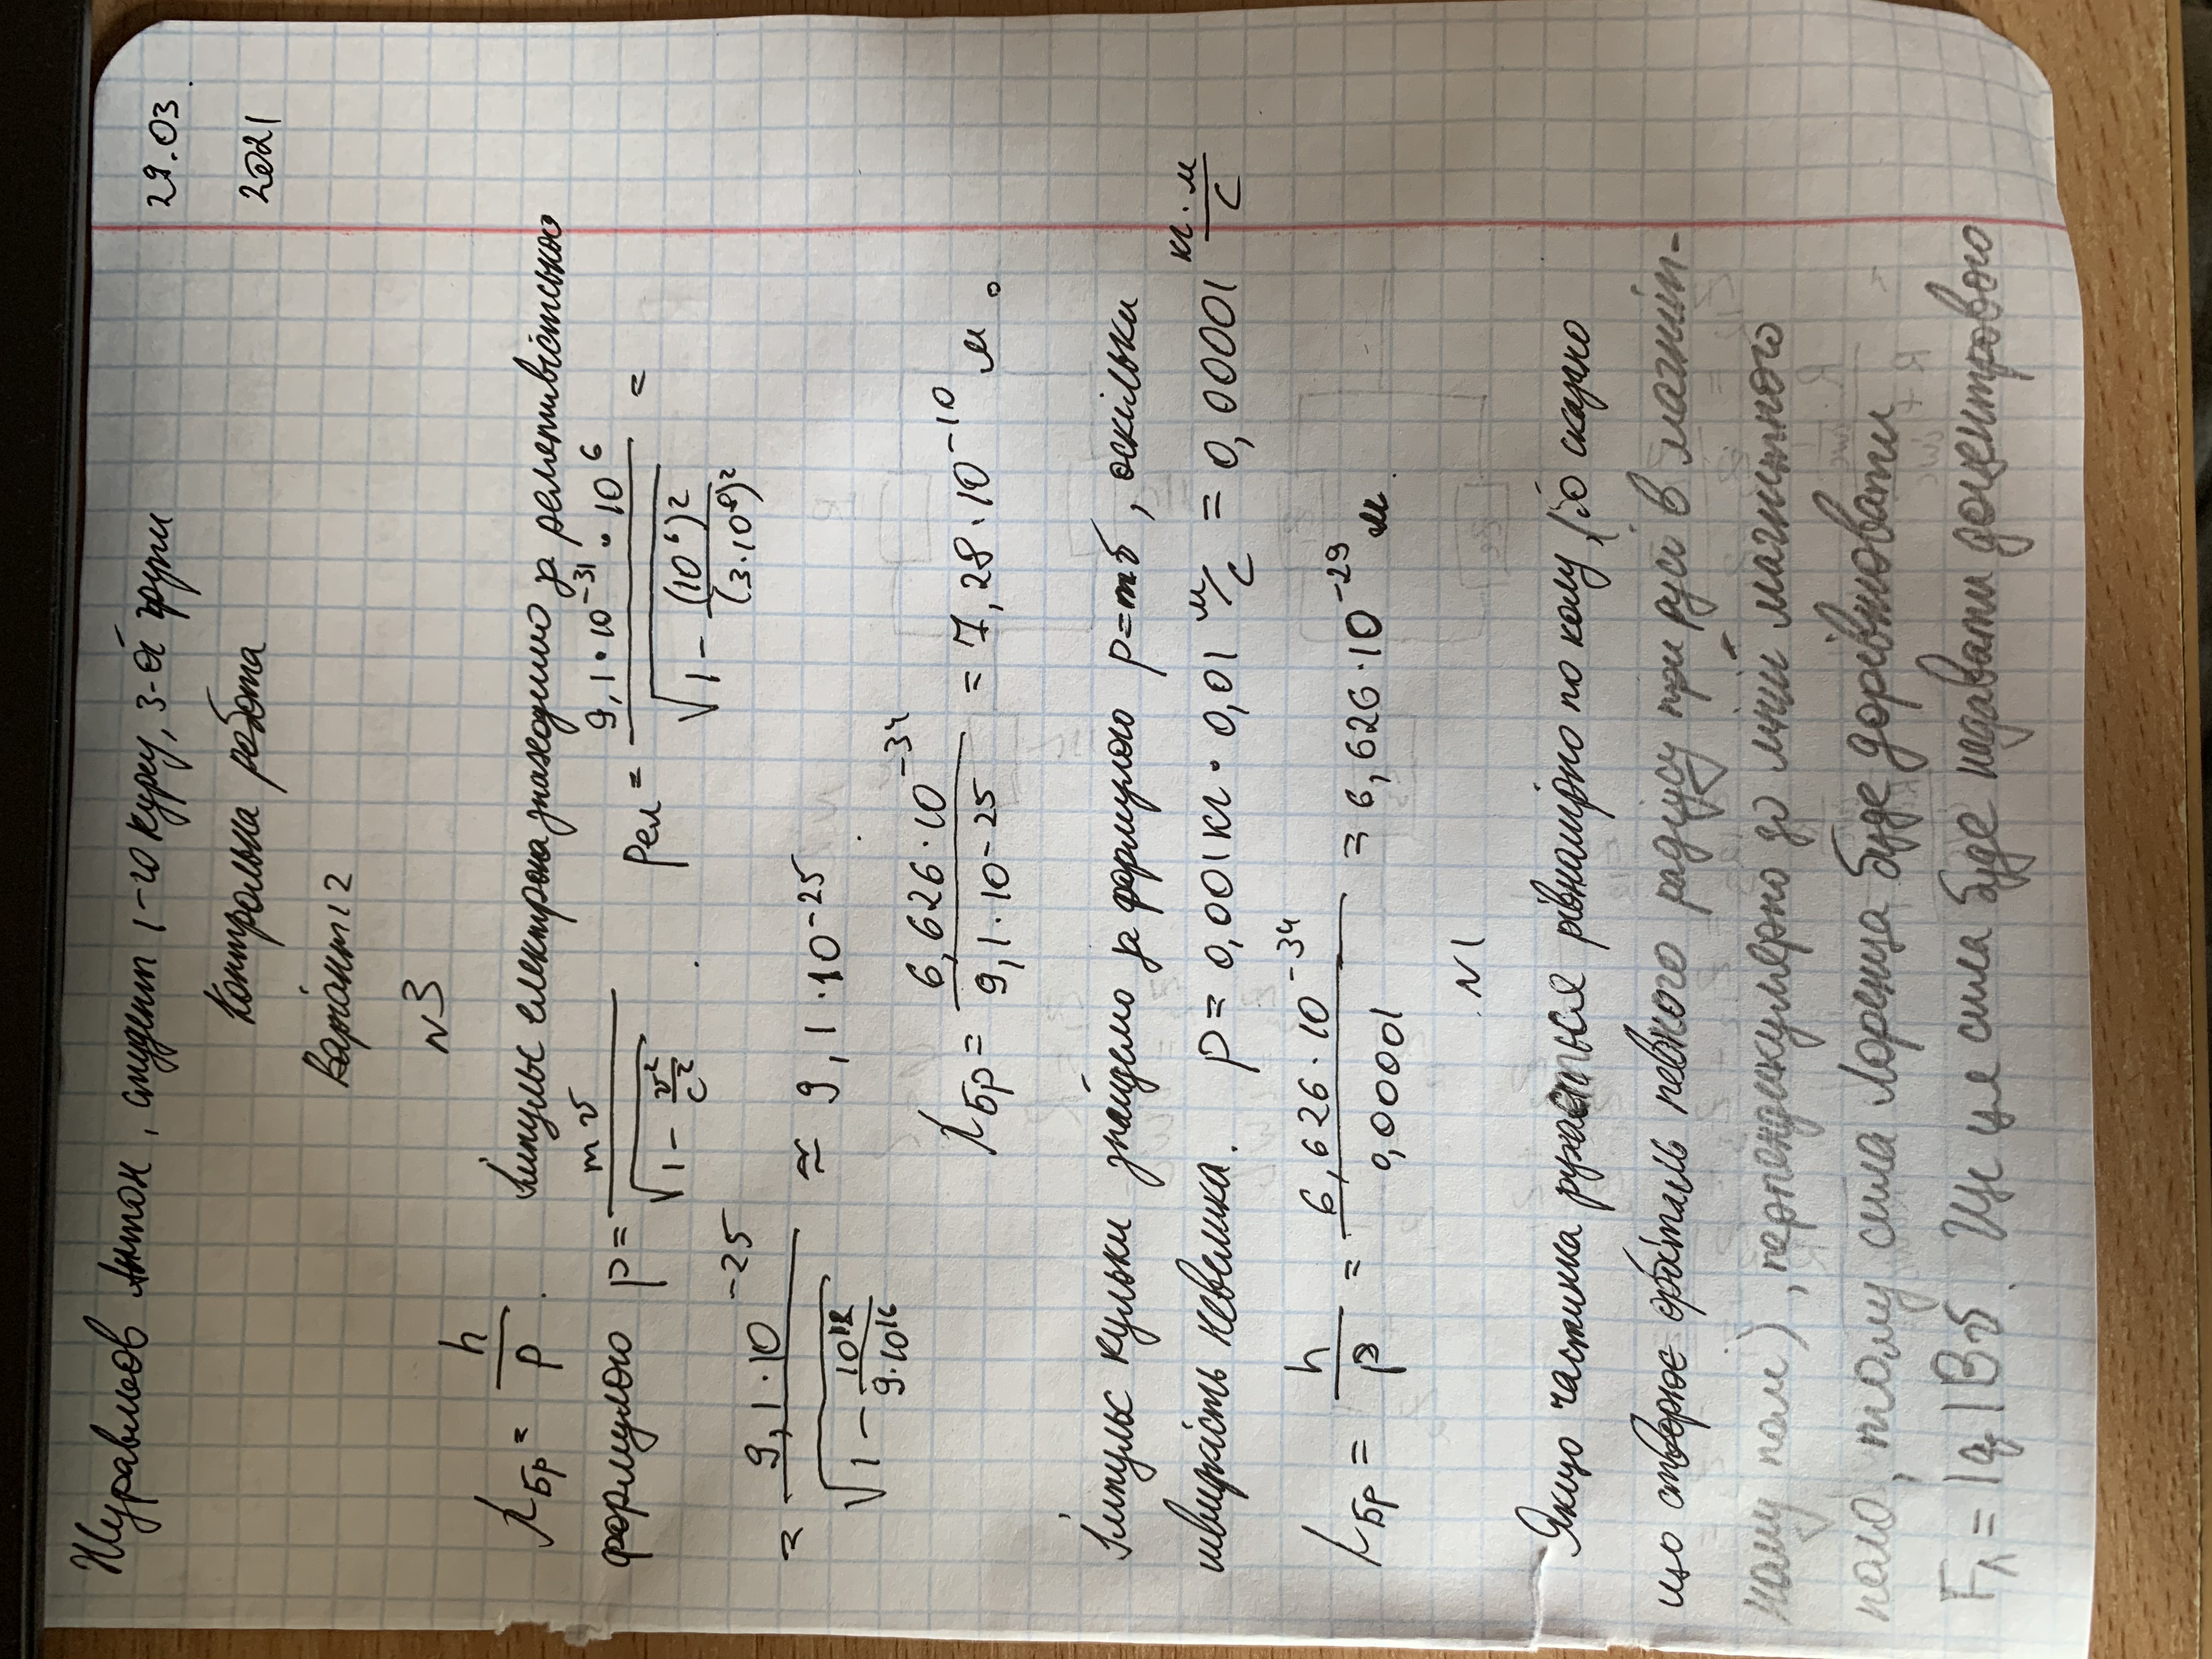 Журавльов Антон, студент 1-го курсу, 3-ої групи 29.03.
Контрольна робота 2021
Варіант 12
№3
λ_Бр = h/p. Імпульс електрона знаходимо за релятивістською
формулою p = mv/√(1 - v²/c²). p_ел = 9,1·10⁻³¹·10⁶/√(1 - (10⁶)²/(3·10⁸)²) =
= 9,1·10⁻²⁵/√(1 - 10¹²/9·10¹⁶) ≈ 9,1·10⁻²⁵.
λ_Бр = 6,626·10⁻³⁴/9,1·10⁻²⁵ = 7,28·10⁻¹⁰ м.
Імпульс кульки знайдемо за формулою p=mv, оскільки
швидкість невелика. p = 0,001кг · 0,01 м/с = 0,00001 кг·м/с
λ_Бр = h/p = 6,626·10⁻³⁴/0,00001 = 6,626·10⁻²⁹ м.
№1
Якщо частинка рухається рівномірно по колу, (бо сказано
що створює орбіталь певного радіусу при русі в магніт-
ному полі), перпендикулярно до ліній магнітного
поля, тому сила Лоренца буде дорівнювати
F_Л = |q|Bv. Ще ця сила буде надавати доцентрового